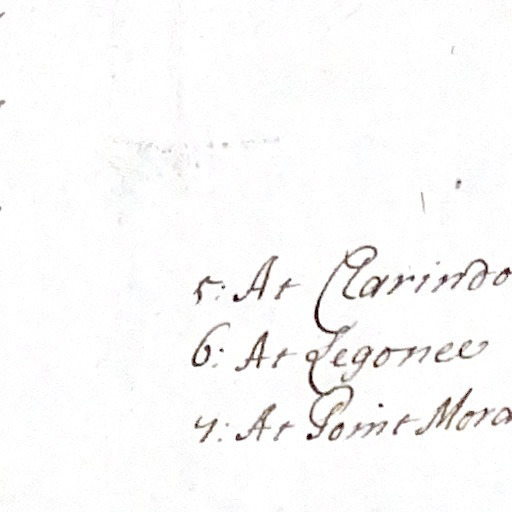 5: At Clarindo
6: At Legonee
7: At Point Mora